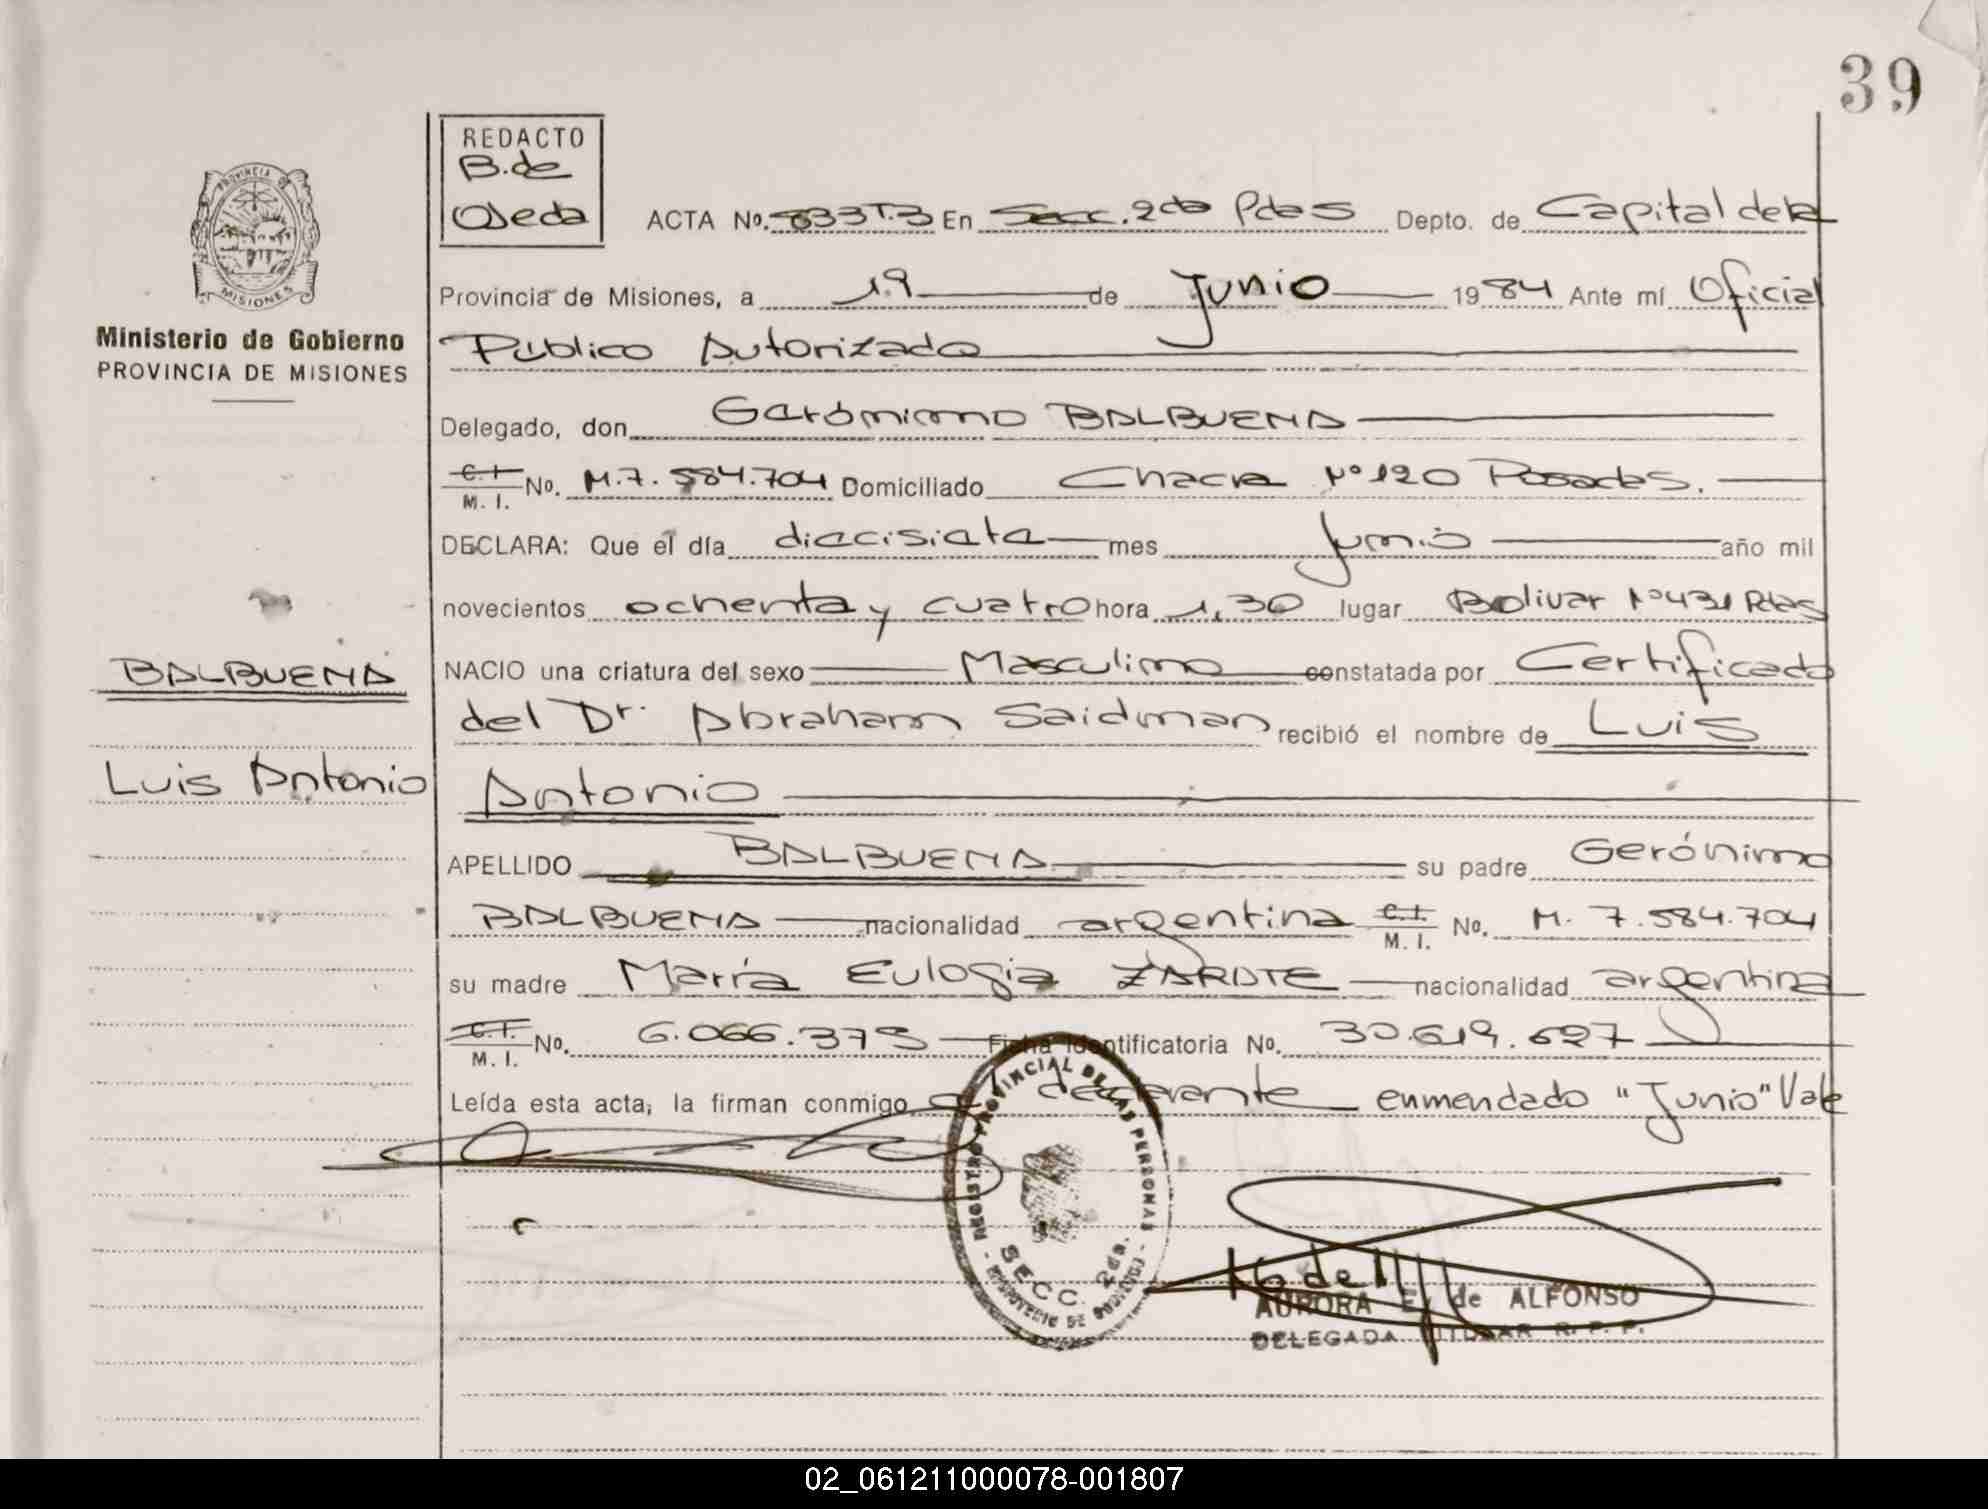 39
REDACTO
B. de
Ojeda
ACTA No. 833T.3 En Secc. 2da Pdas Depto. de Capital de la
PROVINCIA DE
MISIONES
Provincia de Misiones, a 19 de Junio 1984 Ante mí Oficial
Ministerio de Gobierno
PROVINCIA DE MISIONES
Público Autorizado
Delegado, don Gerónimo BALBUENA
C.I. / M. I. No. M.7.584.704 Domiciliado Chacra Nº 120 Posadas.
DECLARA: Que el día diecisiete mes Junio año mil
novecientos ochenta y cuatro hora 1,30 lugar Bolivar Nº 431 Pdas
BALBUENA
NACIO una criatura del sexo Masculino constatada por Certificado
del Dr. Abraham Saidman recibió el nombre de Luis
Luis Antonio
Antonio
APELLIDO BALBUENA su padre Gerónimo
BALBUENA nacionalidad argentina C.I. / M. I. No. M. 7.584.704
su madre María Eulogia ZARATE nacionalidad argentina
C.I. / M. I. No. 6.066.379 Ficha Identificatoria No. 30.619.627
Leída esta acta, la firman conmigo el declarante enmendado "Junio" Vale
REGISTRO PROVINCIAL DE LAS PERSONAS
SECC. 2da.
MINISTERIO DE GOBIERNO
AURORA E. de ALFONSO
DELEGADA TITULAR R. P. P.
02_061211000078-001807